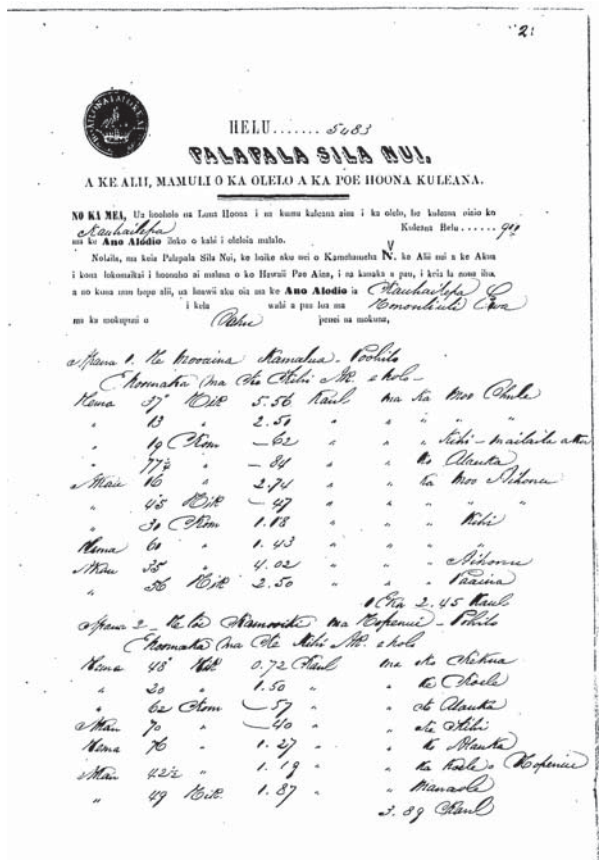 2.
HELU....... 5483
PALAPALA SILA NUI,
A KE ALII, MAMULI O KA OLELO A KA POE HOONA KULEANA.
NO KA MEA, Ua hooholo na Luna Hoona i na kumu kuleana aina i ka olelo, he kuleana oiaio ko
Kauhailepa Kuleana Helu
ma ke Ano Alodio iloko o kahi i oleloia malalo.
Nolaila, ma keia Palapala Sila Nui, ke hoike aku nei o Kamehameha IV, ke Alii nui a ke Akua
i kona lokomaikai i hoonoho ai maluna o ko Hawaii Pae Aina, i na kanaka a pau, i keia la nona iho,
a no kona mau hope alii, ua haawii aku oia ma ke Ano Alodio ia Kauhailepa
i kela wahi a pau loa ma Honouliuli Ewa
ma ka mokupuni o Oahu penei na mokuna,
Apana 1. He Mooaina Kamalua - Poohilo
E hoomaka ma ke Kihi Ak. e holo -
Hema 37° Hik 5.56 Kaul ma ka Moo
" 13 " 2.51 " " " "
" 19 Kom - 62 " " " Kihi -
" 77½ " - 84 " " ko Alauka
Akau 16 " 2.74 " " ka moo Aihonu
" 45 Hik - 47 " " " "
" 31 Kom 1.18 " " " Kihi
Hema 61 " 1.43 " " " "
Akau 35 " 4.02 " " " Aihonu
" 56 Hik 2.50 " " " Paaina
1 Eka 2.45 Kaul
Apana 2 - He loi Kamooiki ma Hopenui - Pohilo
E hoomaka ma ke Kihi Ak. e holo
Hema 48° Hik 0.72 Kaul ma ko Kekua
" 20 " 1.50 " " ke Koele
" 62 Kom - 57 " " ko Alauka
Akau 70 " - 40 " " ke Kihi
Hema 76 " 1.27 " " ko Alauka
Akau 42½ " 1.19 " " ka Koele o Hopenui
" 49 Hik 1.87 " " Manaole
3.89 Kaul